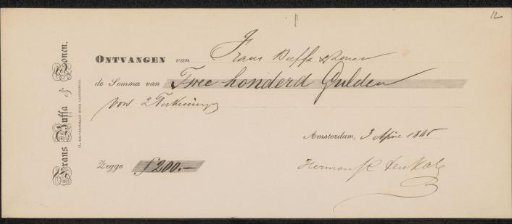 12
Frans Buffa & Zonen.
ONTVANGEN van Frans Buffa & Zonen
de Somma van Twee honderd Gulden
voor 2 Teekeningen
Amsterdam, 3 April 1865
Zegge f 200.–
Herman ten Kate